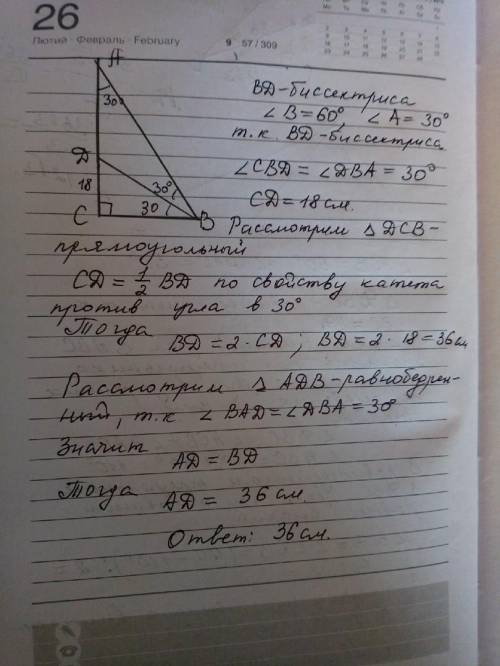 26
Лютий · Февраль · February
9 57 / 309
A
30°
D
18
C
30°
30
B
BD-биссектриса
∠B=60°, ∠A=30°
т.к. BD-биссектриса
∠CBD=∠DBA=30°
CD=18см.
Рассмотрим △DCB-
прямоугольный
CD=1/2 BD по свойству катета
против угла в 30°
Тогда
BD=2·CD; BD=2·18=36см
Рассмотрим △ADB-равнобедрен-
ный, т.к ∠BAD=∠DBA=30°
Значит
AD=BD
Тогда
AD= 36см
Ответ: 36см.